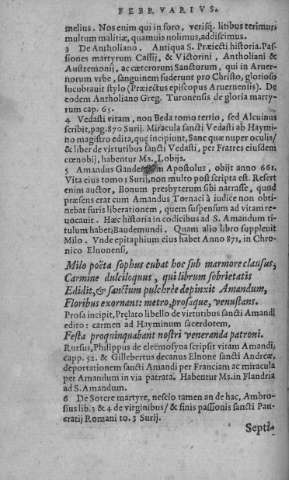 FEBRVARIVS.
melius. Nos enim qui in foro, verisq́; litibus terimur
multum malitiæ, quamuis nolimus, addiscimus.
3 De Antholiano. Antiqua S. Præiecti historia. Pas-
siones martyrum Cassij, & Victorini, Antholiani &
Austremonij, ac cæterorum Sanctorum, qui in Aruer-
norum vrbe, sanguinem fuderunt pro Christo, glorioso
lucubrauit stylo (Præiectus episcopus Aruernensis). De
eodem Antholiano Greg. Turonensis de gloria marty-
rum cap. 65.
4 Vedasti vitam, non Beda tomo tertio, sed Alcuinus
scribit, pag. 870 Surij. Miracula sancti Vedasti ab Haymi-
no magistro edita, quę incipiunt, Sanè quæ nuper oculis,
& liber de virtutibus sancti Vedasti, per Fratres eiusdem
cœnobij, habentur Ms. Lobijs.
5 Amandus Gandensium Apostolus, obijt anno 661.
Vita eius tomo 1 Surij, non multo post scripta est. Refert
enim auctor, Bonum presbyterum sibi narrasse, quod
præsens erat cum Amandus Tornaci à iudice non obti-
nebat suris liberationem, quem suspensum ad vitam re-
uocauit. Hæc historia in codicibus ad S. Amandum ti-
tulum habet; Baudemundi. Quam alio libro suppleuit
Milo. Vnde epitaphium eius habet Anno 871, in Chro-
nico Elnonensi,
Milo poëta sophus cubat hoc sub marmore clausus,
Carmine dulciloquus, qui librum sobrietatis
Edidit, & sanctum pulchrè depinxit Amandum,
Floribus exornans: metro, prosaque, venustans.
Prosa incipit, Prælato libello de virtutibus sancti Amandi
edito: carmen ad Hayminum sacerdotem,
Festa propinquabant nostri veneranda patroni.
Rursus, Philippus de eleemosyna scripsit vitam Amandi,
capp. 52. & Gillebertus decanus Elnonē sancti Andreæ,
deportationem sancti Amandi per Franciam ac miracula
per Amandum in via patrata. Habentur Ms. in Flandria
ad S. Amandum.
6 De Sotere martyre, nescio tamen an de hac, Ambro-
sius lib. 3 & 4 de virginibus, & finis passionis sancti Pan-
cratij Romani to. 3 Surij.
Septi-